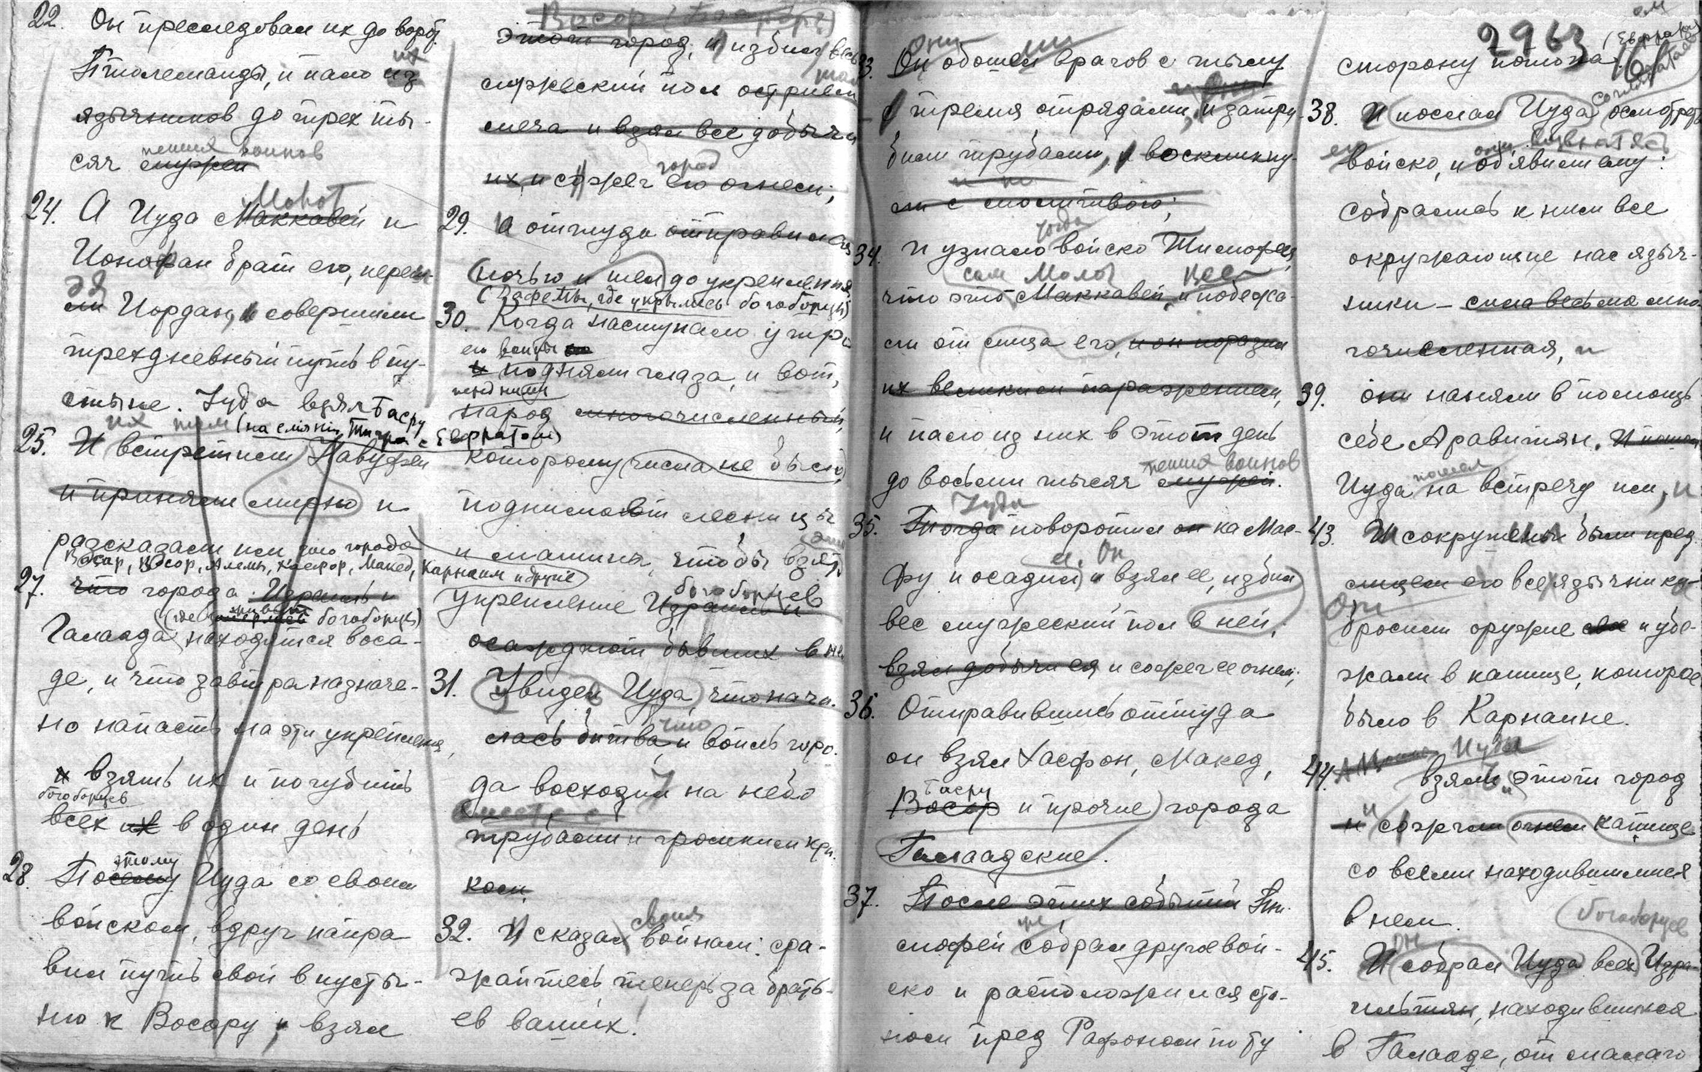 22. Он преследовал их до ворот
Птолемаиды, и пало из них
язычников до трех ты-
сяч мужей пеших воинов
24. А Иуда Маккавей Молот и
Ионафан брат его, переш-
ли Иордан, и совершили
трехдневный путь в пу-
стыне. Иуда взял Басру
(на слиянии Тигра с Евфратом)
25. И встретили Навуфеи
и приняли мирно и
рассказали им, что города
Васар, Восор, Алемы, Хасфор, Макед, Карнаим и другие
27. что города Израиль
(где живет богоборцы)
Галаада находятся в оса-
де, и что завтра назначе-
но напасть на эти укрепления,
и взять их и погубить
богоборцев
всех их в один день
28. Посему этому Иуда со своим
войском, вдруг напра
вил путь свой в пусты-
ню к Восору, и взял
Васор (Басру)
этот город, и избил весь
мужеский пол острием
меча и взял все добычи
их, и сожег его город огнем;
29. И оттуда отправился
ночью и шел до укрепления
(Дафемы, где укрылись богоборцы)
30. Когда наступало утро
его воины
и подняли глаза, и вот,
перед ними
народ многочисленный,
которому числа не было,
поднимают лестницы
и машины, чтобы взять
укрепление Израиль богоборцев
осаждают бывших в нем
31. Увидел Иуда, что нача-
лась битва и что вопль горо-
да восходил на небо
вместе с
трубами и громким кри-
ком
32. И сказал своим войнам: сра-
жайтесь теперь за брать-
ев ваших!
33. Они обошел врагов с тылу
с тремя отрядами, и затру
били трубами, и воскликну-
ли с молитвою;
34. И узнало тогда войско Тимофея,
что это сам Молот Маккавей, и побежа-
ли от лица его, и он поразил
их великим поражением,
и пало из них в этот день
до восьми тысяч мужей пеших воинов.
35. Тогда Иуда поворотил он на Мас-
фу и осадил ее. Он и взял ее, избил
весь мужеский пол в ней,
взял добычи ея и сожег ее огнем;
36. Отправившись оттуда
он взял Хасфон, Макед,
Восор Басру и прочие города
Галаадские.
37. После этих событий Ти-
мофей же собрал другое вой-
ско и расположился ста-
ном пред Рафоном по ту
2963
(Евфрата)
сторону потока
38. И послал Иуда осмотреть
войско, и объявили ему:
собрались к ним все
окружающие нас языч-
ники – сила весьма мно-
гочисленная, и
39. они наняли в помощь
себе Аравитян. И пошел
Иуда пошел на встречу им, и
43. И сокрушены были пред
лицем его все язычники
Они
бросили оружие свое и убе-
жали в капище, которое
было в Карнаине.
44. Иуда
взяли этот город
и сожгли огнем капище
со всеми находившимися
в нем.
богоборцев
45. И он собрал Иуда всех Изра-
ильтян, находившихся
в Галааде, от малаго